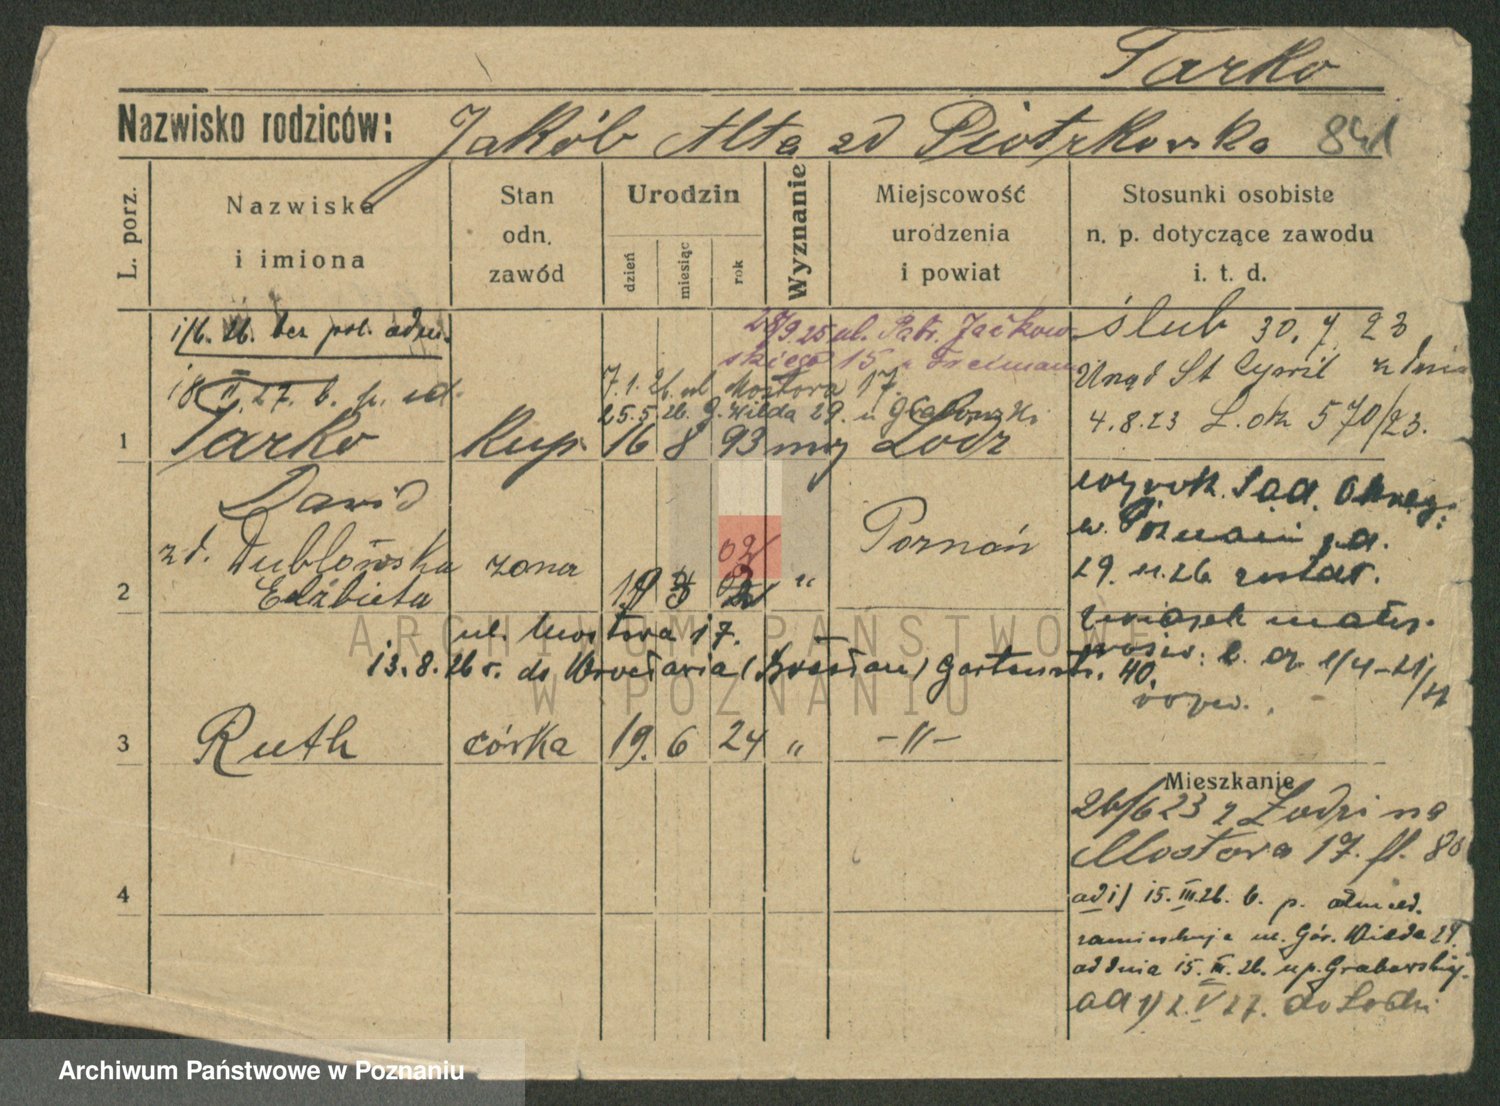 Tarko
Nazwisko rodziców: Jakób Alta zd Piotrkowska 841
L. porz.
Nazwiska
i imiona
Stan
odn.
zawód
Urodzin
dzień
miesiąc
rok
Wyznanie
Miejscowość
urodzenia
i powiat
Stosunki osobiste
n. p. dotyczące zawodu
i. t. d.
1/6. 26. bez pol. adm.
18 II. 27. b. p. ed.
28/9.25 ul. Patr. Jačkow
skiego 15
7.1.26. ul Mostowa 17.
25.5.26. G. Wilda 29. u Grabowski
1 Tarko Kup. 16 8 93 moj Lodz
Dawid
zd. Dublowska żona 02 Poznań
2 Elżbieta 19 3 02 "
ul. Mostowa 17.
13.8.26 r. do Wrocławia (Breslau) Gartenstr. 40.
3 Ruth córka 19. 6 24 " -"-
4
ślub 30. 7 23
Urząd St Cywil z dnia
4.8.23 L. 570/23.
wyrok. Sąd. Okręg:
w. Poznaniu z d.
29. 11. 26. został.
związek małż.
40.
Mieszkanie
26/6 23 z Łodzi na
Mostowa 17. 80
ad 1) 15. III. 26. b. p.
zamieszkuje ul. Gór. Wilda 29.
od dnia 15. III. 26. u p. Grabowskiej.
ad 1) 2. V 27. do Lodzi
ARCHIWUM PAŃSTWOWE
W POZNANIU
Archiwum Państwowe w Poznaniu